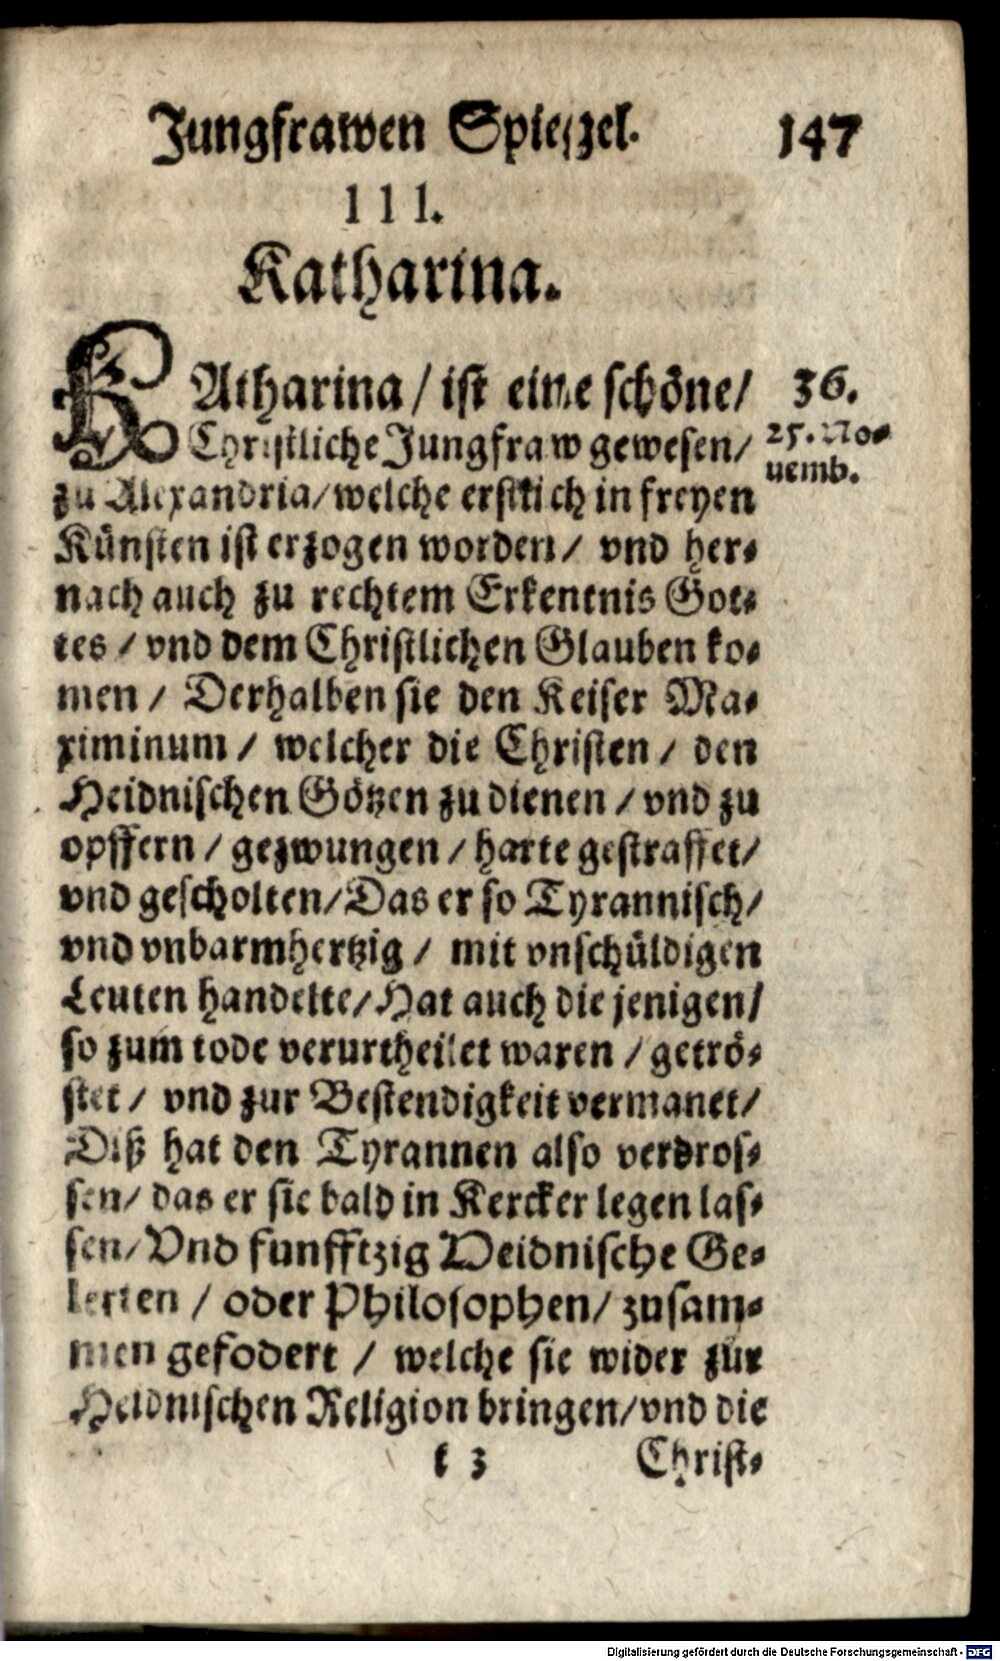 Jungfrawen Spiegel. 147
III.
Katharina.
KAtharina / ist eine schöne / 36.
Christliche Jungfraw gewesen / 25. No-
uemb.
zu Alexandria / welche erstlich in freyen
Künsten ist erzogen worden / vnd her-
nach auch zu rechtem Erkentnis Got-
tes / vnd dem Christlichen Glauben ko-
men / Derhalben sie den Keiser Ma-
ximinum / welcher die Christen / den
Heidnischen Götzen zu dienen / vnd zu
opffern / gezwungen / harte gestraffet /
vnd gescholten / Das er so Tyrannisch /
vnd vnbarmhertzig / mit vnschüldigen
Leuten handelte / Hat auch die jenigen /
so zum tode verurtheilet waren / getrö-
stet / vnd zur Bestendigkeit vermanet /
Diß hat den Tyrannen also verdros-
sen / das er sie bald in Kercker legen las-
sen / Vnd funfftzig Heidnische Ge-
lerten / oder Philosophen / zusam-
men gefodert / welche sie wider zur
Heidnischen Religion bringen / vnd die
k 3 Christ-
Digitalisierung gefördert durch die Deutsche Forschungsgemeinschaft - DFG